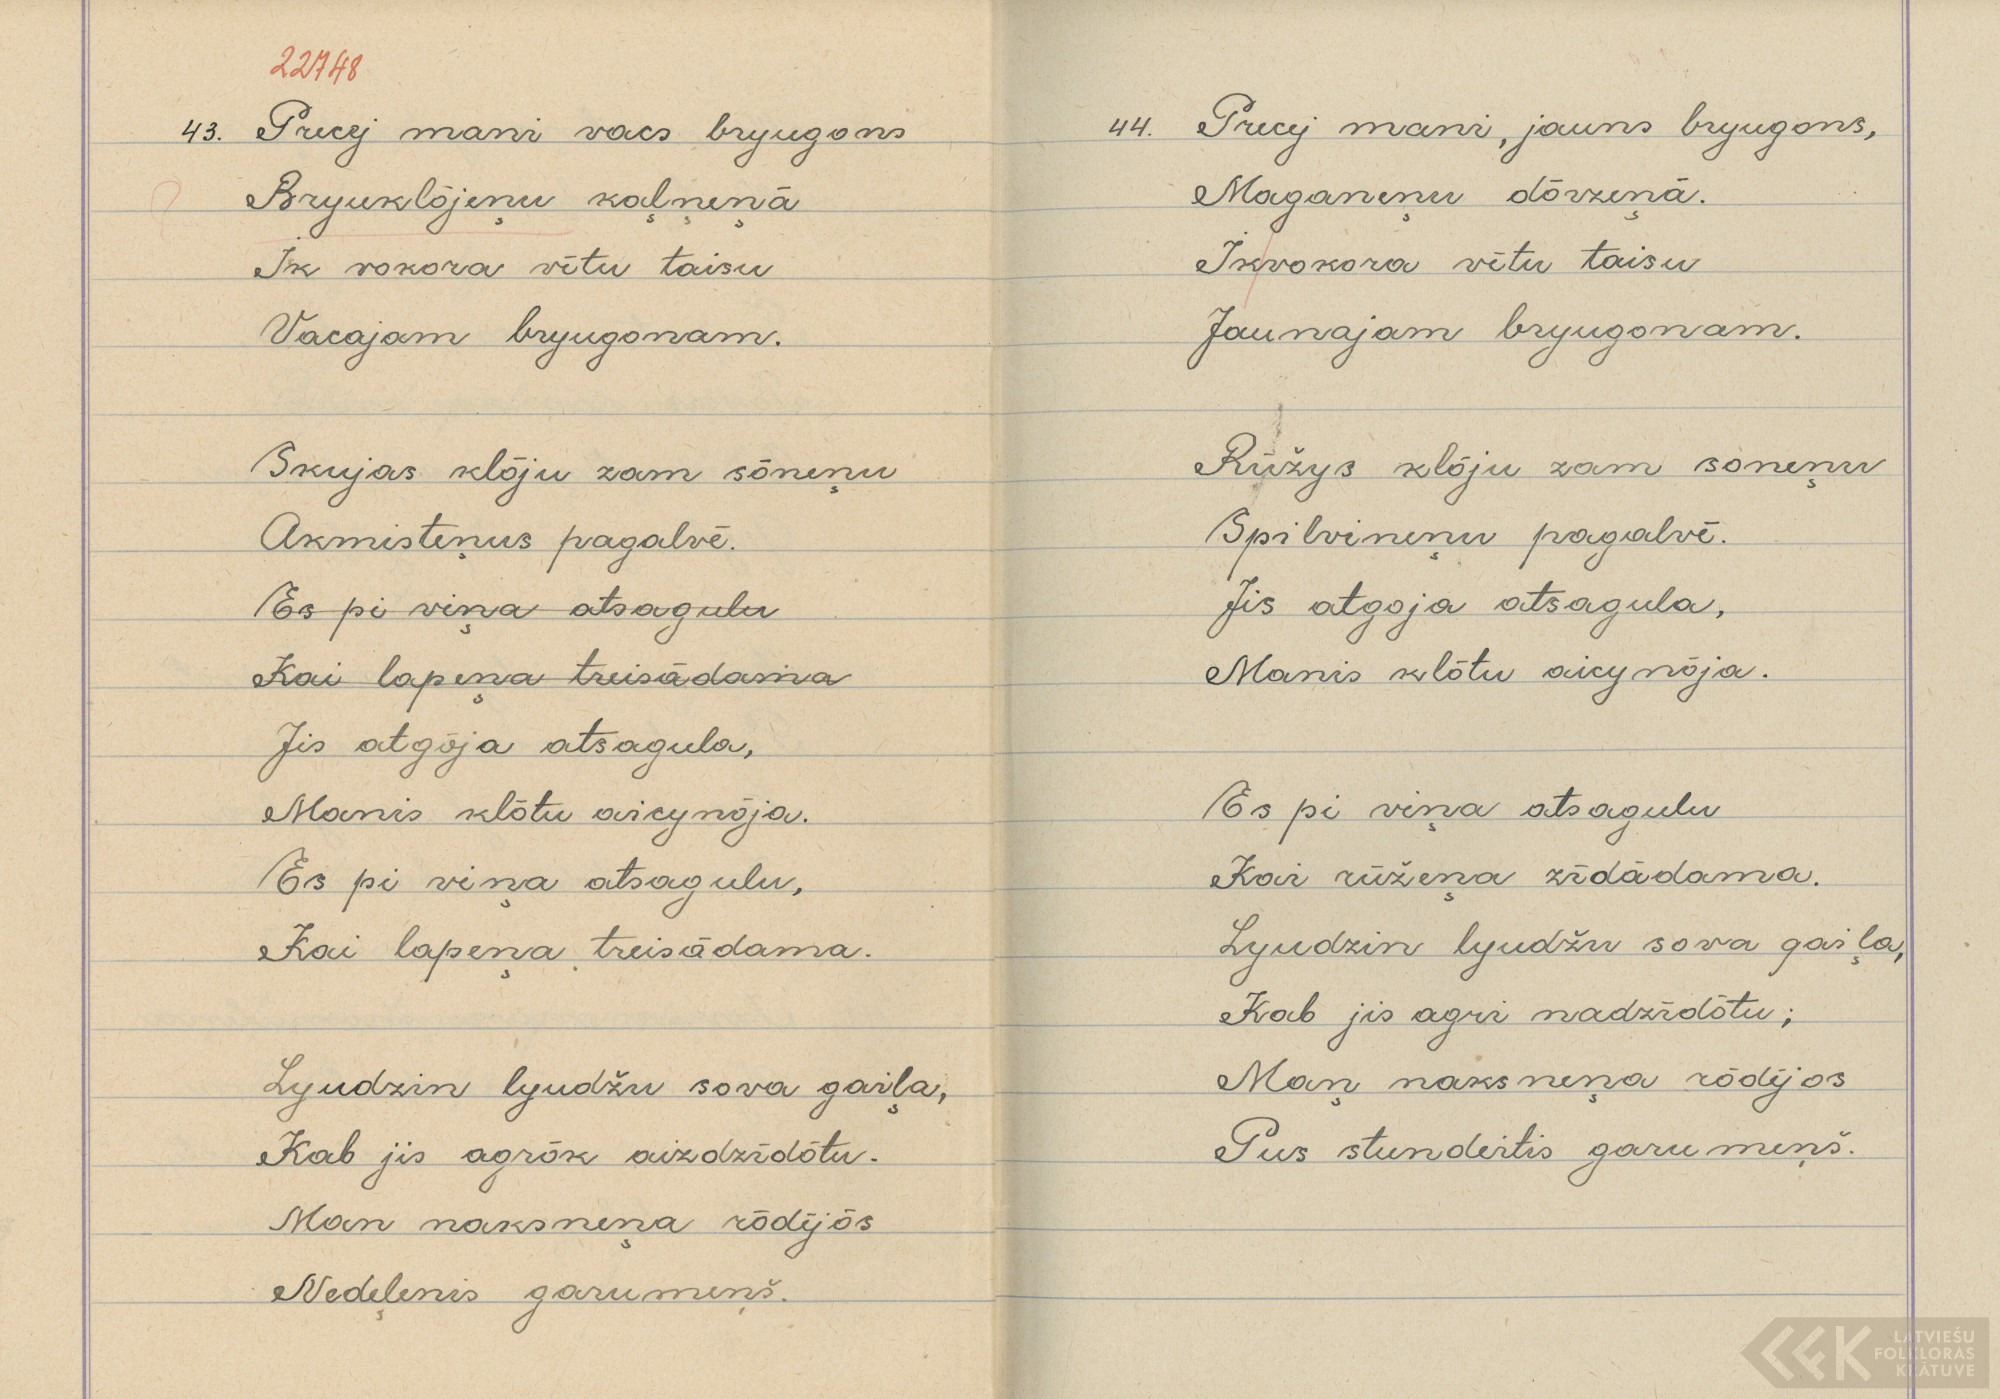 22748
43. Precej mani vacs bryugons
Bryuklōjeņu kaļņeņā
Ik vokora vītu taisu
Vacajam bryugonam.
Skujas klōju zam sōneņu
Akmisteņus pagalvē.
Es pi viņa atsagulu
Kai lapeņa treisādama
Jis atgōja atsagula,
Manis klōtu aicynōja.
Es pi viņa atsagulu,
Kai lapeņa treisādama.
Lyudzin lyudžu sova gaiļa,
Kab jis agrōk aizdzīdōtu.
Man naksneņa rōdējōs
Nedeļenis garumeņš.
44. Precej mani, jauns bryugons,
Maganeņu dōvzeņā.
Ikvokora vītu taisu
Jaunajam bryugonam.
Rūžys klōju zam soneņu
Spilvineņu pagalvē.
Jis atgoja atsagula,
Manis klōtu aicynōja.
Es pi viņa atsagulu
Kai rūžeņa zīdādama.
Lyudzin lyudžu sova gaiļa,
Kab jis agri nadzīdōtu;
Maņ naksneņa rōdējos
Pus stundeitis garumeņš.
LATVIEŠU
FOLKLORAS
KRĀTUVE